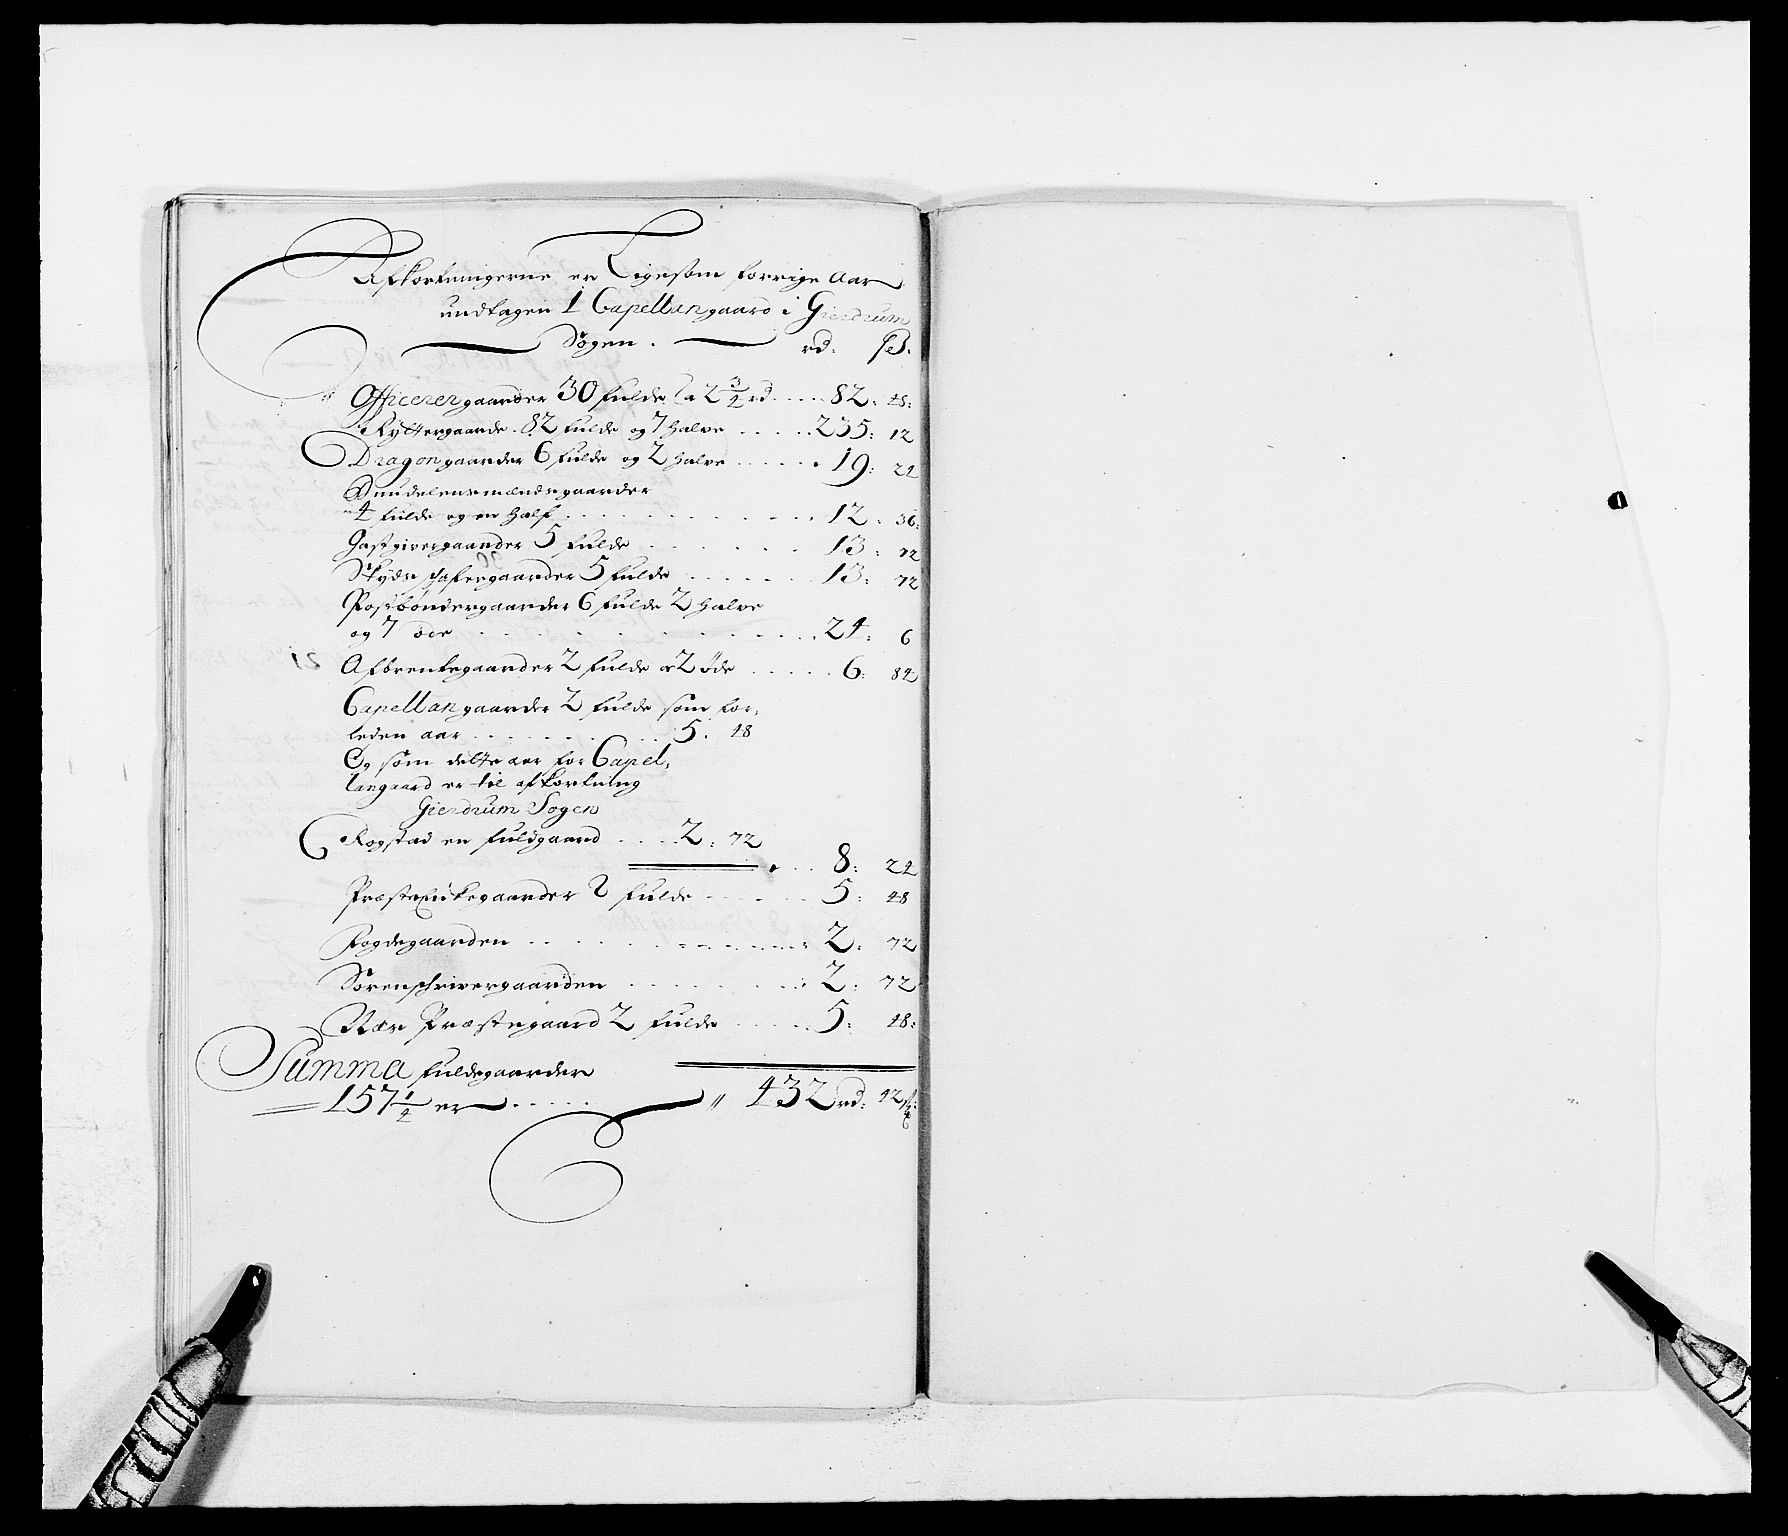 Afkortningerne er Ligesom forrige Aar
undtagen 1 Capellangaard i Gierdrum
Sogen. rd: sß:
Officerergaarder 30 fulde a 2 3/4 rd .... 82: 48:
Ryttergaarde 82 fulde og 7 halve ..... 235: 12
Dragongaarder 6 fulde og 2 halve ...... 19: 24
Bundelensmændsgaarder
4 fulde og en half ........ 12: 36:
Gastgivergaarder 5 fulde ...... 13: 72
Skyds schafergaarder 5 fulde ...... 13: 72
Postbøndergaarder 6 fulde 2 halve
og 7 øde ........ 24: 6
Afbrentegaarder 2 fulde or 2 øde ..... 6: 84
Capellangaarder 2 fulde som for:
leden aar ........ 5: 48
Og som dette aar for Capel:
langaard er til afkortning
Gierdrum Sogen
Rogstad en fuldgaard .... 2: 72
8: 24
Præsteenkegaarder 2 fulde ...... 5: 48
Fogdegaarden ........ 2: 72
Sorenschrivergaarden ....... 2: 72
Nær Præstegaard 2 fulde ..... 5: 48:
Summa fuldegaarder
157 1/4 er ..... " 432 rd: 42 sk: